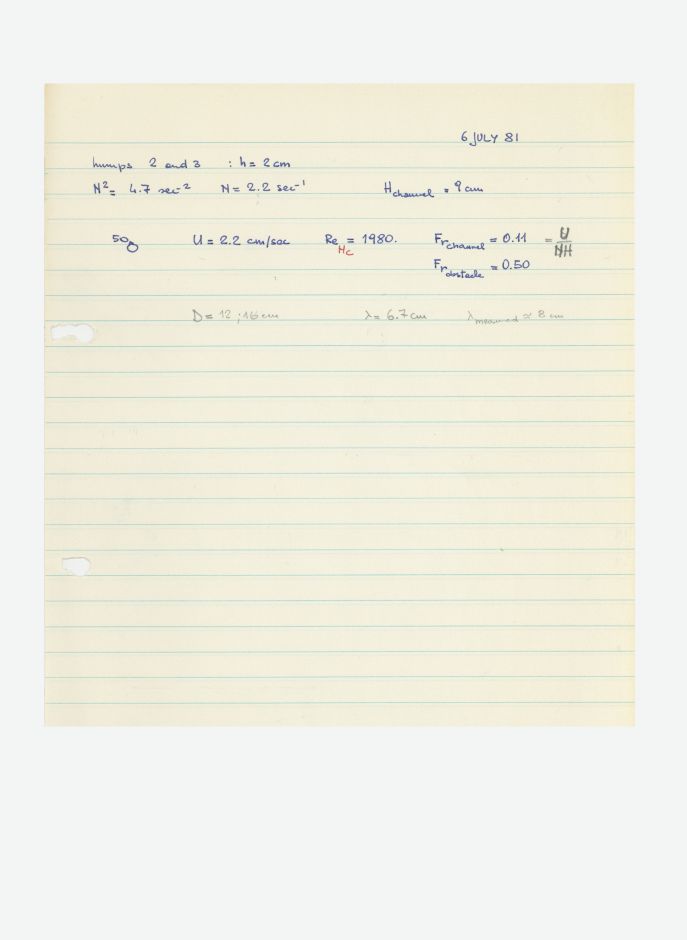 6 JULY 81
humps 2 and 3 : h = 2 cm
N² = 4.7 sec⁻² N = 2.2 sec⁻¹ H channel = 9 cm
50g U = 2.2 cm/sec Re Hc = 1980. Fr channel = 0.11 = U/NH
Fr obstacle = 0.50
D = 12 ; 16 cm λ = 6.7 cm λ measured ≈ 8 cm